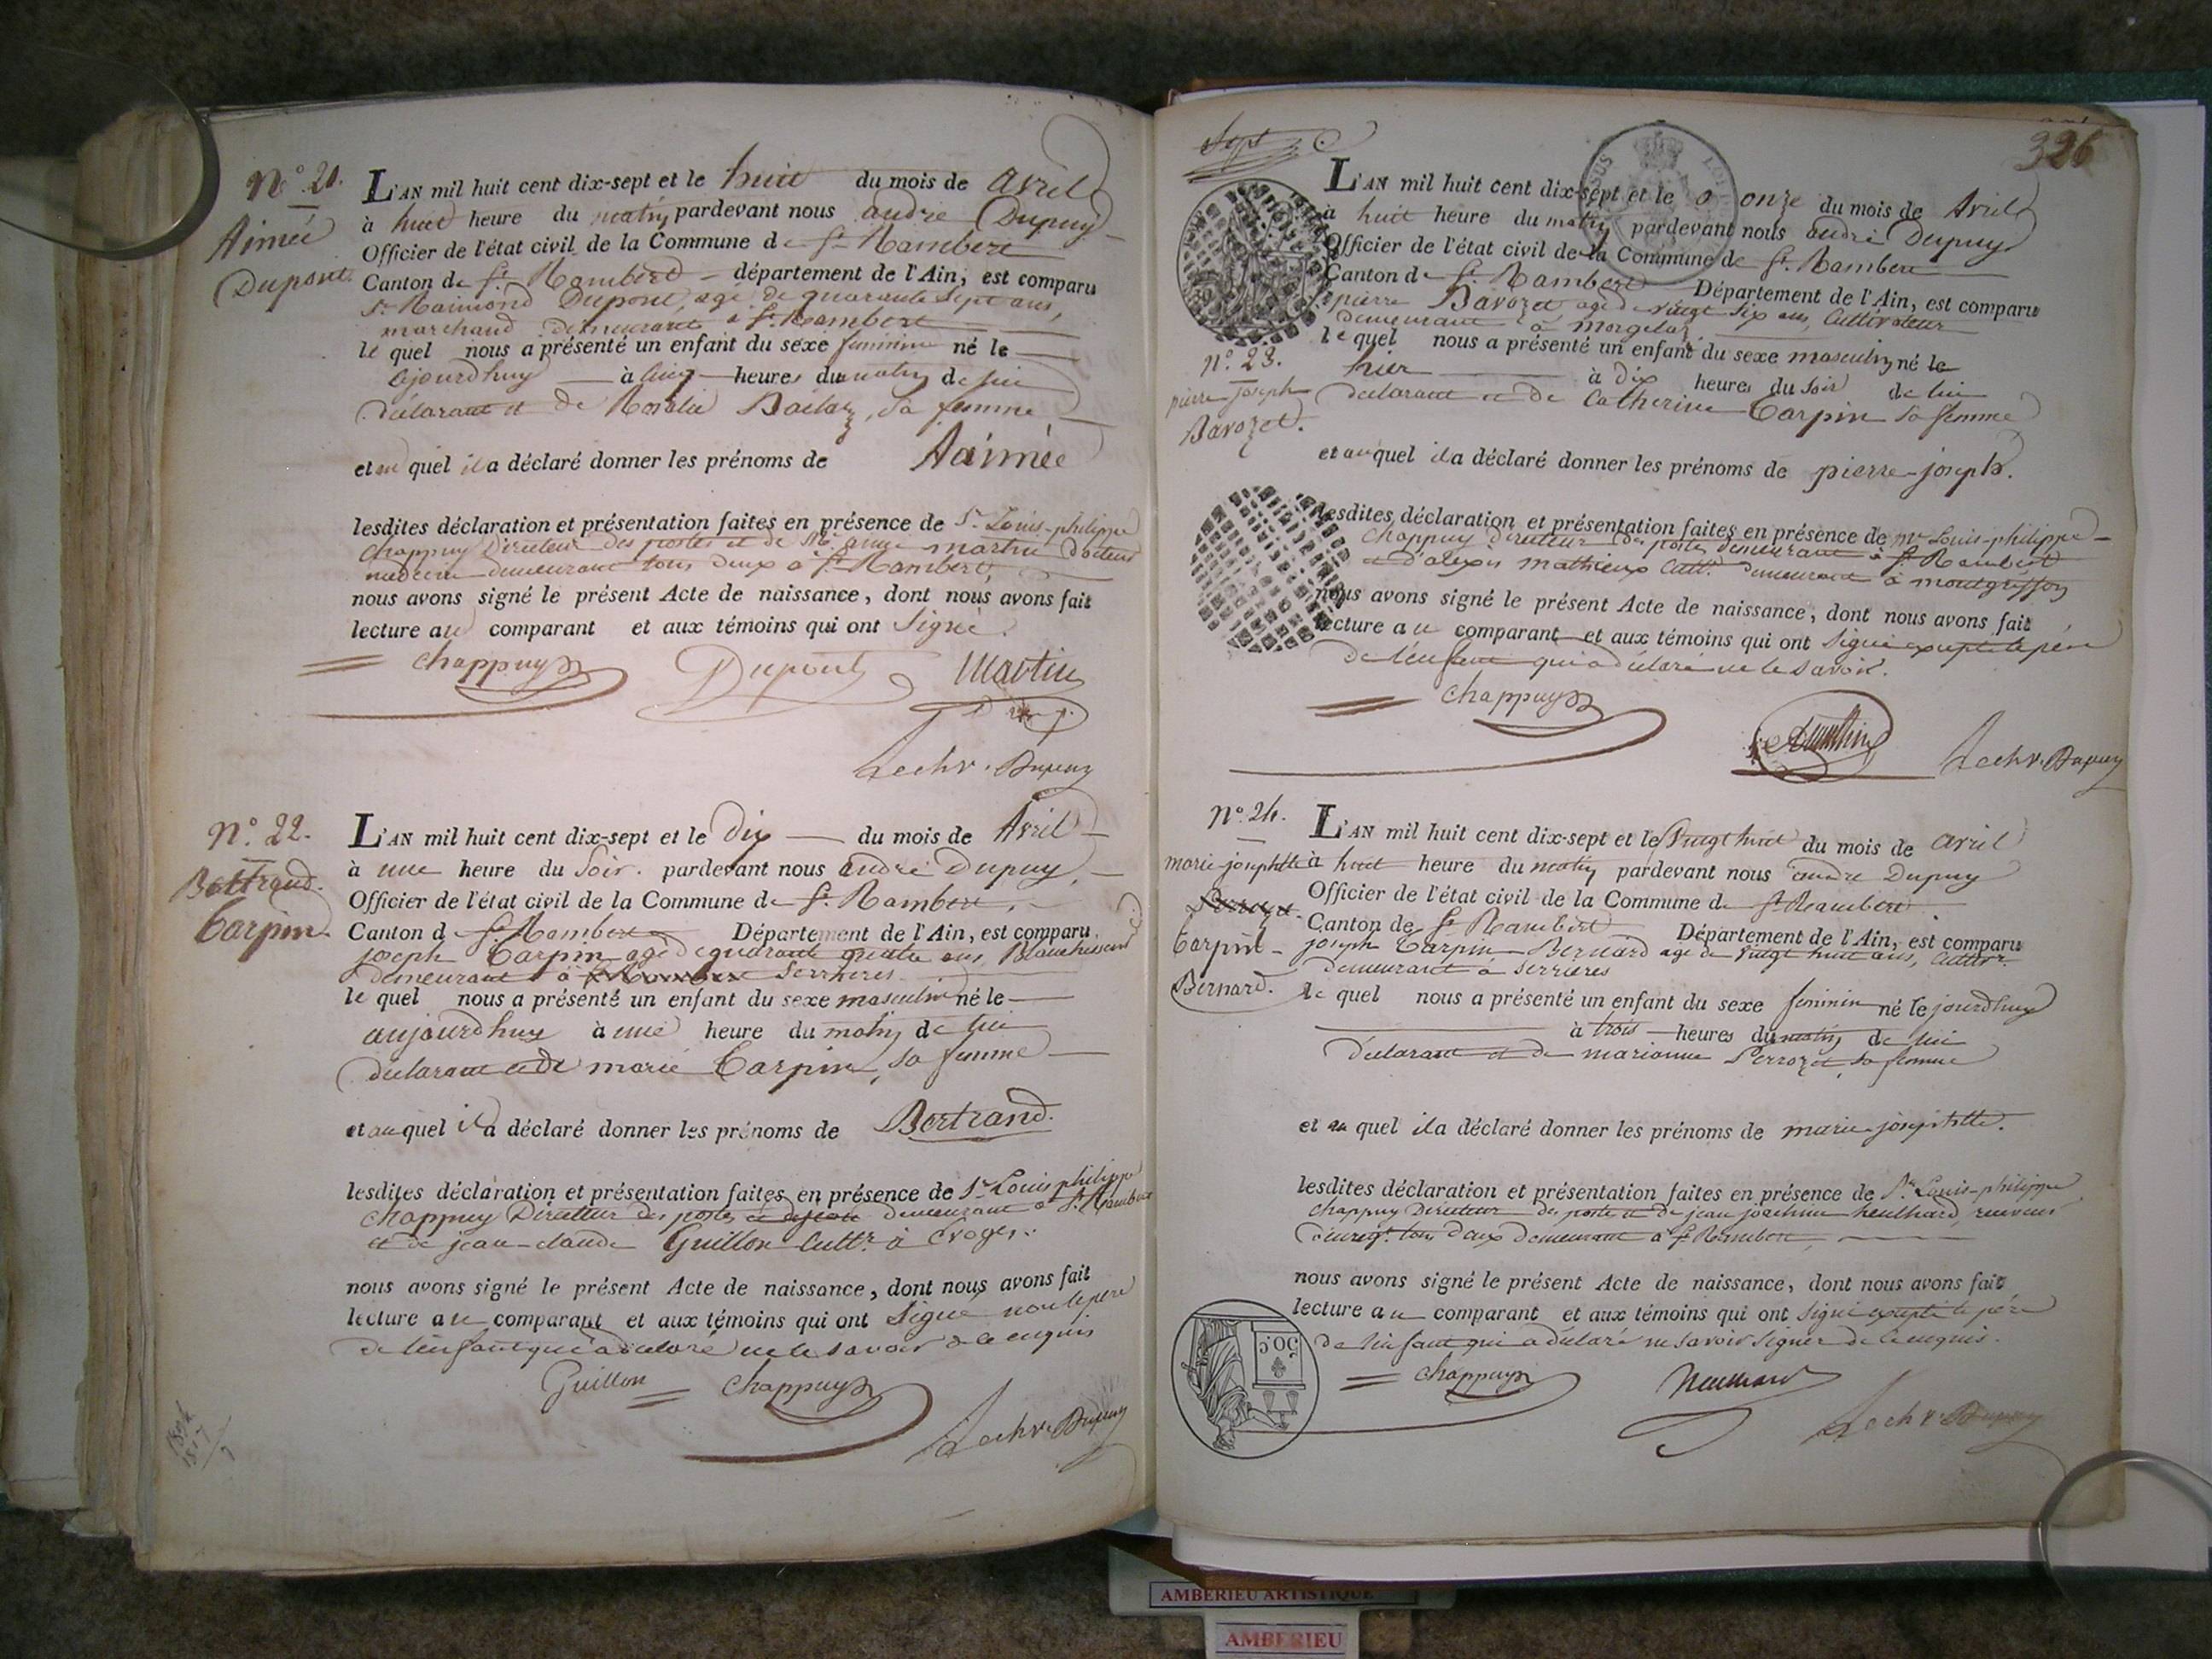 N.° 21.
Aimée
Dupont.
L'AN mil huit cent dix-sept et le huit du mois de avril
à huit heure du matin pardevant nous andré Dupuy
Officier de l'état civil de la Commune de St. Rambert
Canton de St. Rambert département de l'Ain, est comparu
Sr. Raimond Dupont, agé de quarante sept ans,
marchand demeurant à St. Rambert
le quel nous a présenté un enfant du sexe feminin né le
ajourdhuy à cinq heures du matin de lui
déclarant et de Rosalie sa femme
et au quel il a déclaré donner les prénoms de Aaimée
lesdites déclaration et présentation faites en présence de Sr. Louis-philippe
Chappuy Directeur des postes et de martin docteur
medecin demeurant tous deux à St. Rambert,
nous avons signé le présent Acte de naissance, dont nous avons fait
lecture au comparant et aux témoins qui ont Signé.
Chappuy Dupont Martin
Lechr. Dupuy
N.° 22.
Bertrand.
Carpin.
L'AN mil huit cent dix-sept et le Dix du mois de Avril
à une heure du Soir. pardevant nous andré Dupuy,
Officier de l'état civil de la Commune de St. Rambert,
Canton de St. Rambert Département de l'Ain, est comparu
joseph Carpin agé de quarante quatre ans, Blanchisseur
demeurant à Serrieres
le quel nous a présenté un enfant du sexe masculin né le
aujourdhuy à une heure du matin de lui
déclarant et de marie Carpin, sa femme
et au quel il a déclaré donner les prénoms de Bertrand.
lesdites déclaration et présentation faites en présence de Sr. Louis philippe
Chappuy Directeur des postes demeurant à St. Rambert
et de jean-claude Guillon Cultr. à Evoges.
nous avons signé le présent Acte de naissance, dont nous avons fait
lecture au comparant et aux témoins qui ont Signé non le pere
de l'enfant qui a déclaré ne le savoir de ce enquis
Guillon Chappuy
Lechr. Dupuy
Sept
326
L'AN mil huit cent dix-sept et le onze du mois de Avril
à huit heure du matin pardevant nous andré Dupuy
Officier de l'état civil de la Commune de St. Rambert
Canton de St. Rambert Département de l'Ain, est comparu
pierre Bavozet, agé de vingt six ans, Cultivateur
demeurant à morgelaz
le quel nous a présenté un enfant du sexe masculin né le
N.° 23.
pierre joseph
Bavozet.
hier à dix heures du soir de lui
declarant et de Catherine Carpin sa femme
et au quel il a déclaré donner les prénoms de pierre-joseph.
lesdites déclaration et présentation faites en présence de mr. Louis-philippe
Chappuy directeur des postes demeurant à St. Rambert
et d'alexis mathieux Cultr. demeurant à montgriffon
nous avons signé le présent Acte de naissance, dont nous avons fait
lecture au comparant et aux témoins qui ont Signé excepté le père
de l'enfant qui a déclaré ne le savoir.
Chappuy
Lechr. Dupuy
N.° 24.
marie-josephtte
Carpin
Bernard.
L'AN mil huit cent dix-sept et le Vingt huit du mois de avril
à huit heure du matin pardevant nous andré Dupuy
Officier de l'état civil de la Commune de St. Rambert
Canton de St. Rambert Département de l'Ain, est comparu
joseph Carpin Bernard agé de vingt huit ans, Cultivr.
demeurant à serrieres
le quel nous a présenté un enfant du sexe feminin né le jourdhuy
à trois heures du matin de lui
déclarant et de marianne Perrozet, sa femme
et au quel il a déclaré donner les prénoms de marie-josephtte.
lesdites déclaration et présentation faites en présence de Sr. Louis-philippe
Chappuy Directeur des postes et de jean joachim heulhard, receveur
d'enregt. tous deux demeurant à St. Rambert,
nous avons signé le présent Acte de naissance, dont nous avons fait
lecture au comparant et aux témoins qui ont signé excepté le père
de l'enfant qui a déclaré ne savoir signer de ce enquis.
Chappuy heulhard
Lechr. Dupuy
50C
AMBERIEU ARTISTIQUE
AMBERIEU